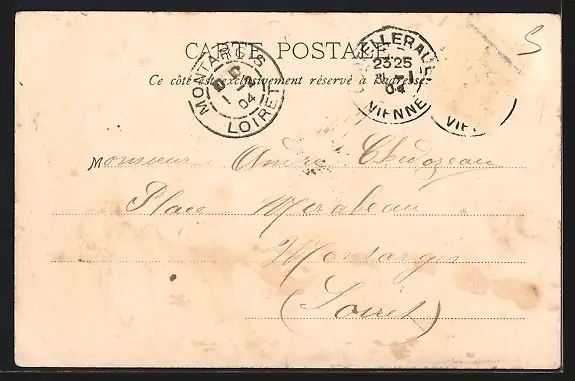 CARTE POSTALE
Ce côté est exclusivement réservé à l'adresse.
MONTARGIS
1 04
LOIRET
ELLERAU
23 25
04
VIENNE
VIE
S
Monsieur André
Place Mirabeau
Montargis
(Loiret)